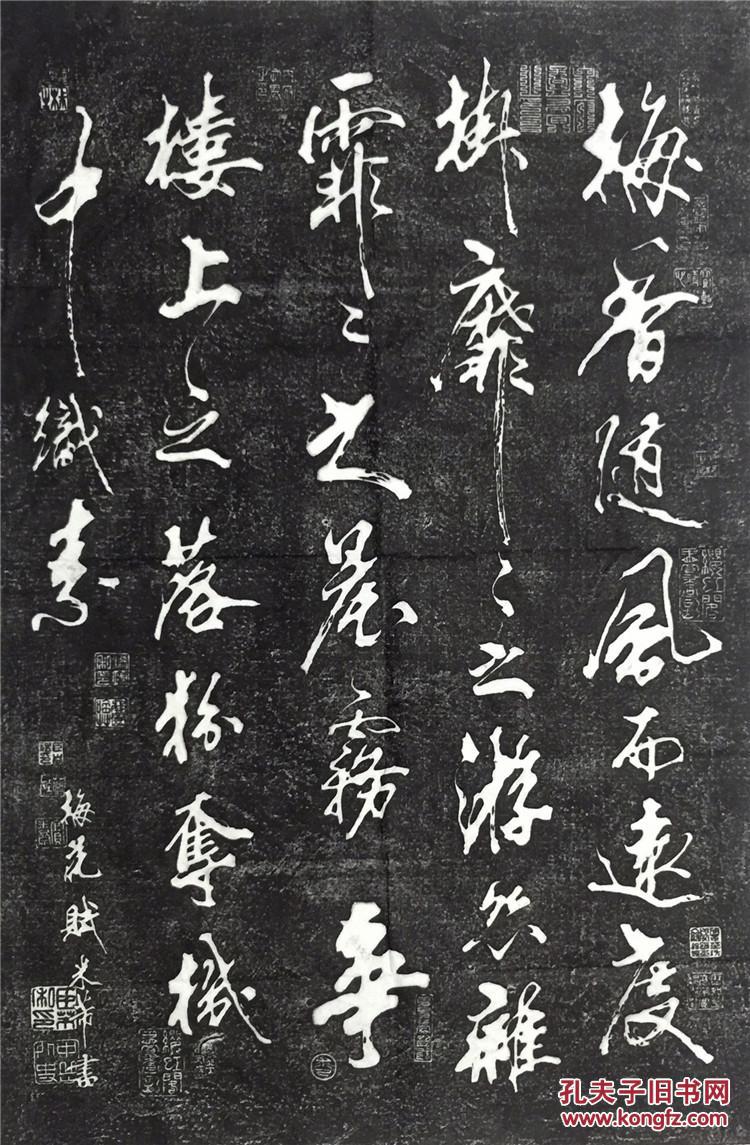 梅香隨風而遠度
掛靡〻之游絲雜
霏〻之晨霧爭
樓上之落粉奪機
中織素
梅花賦米芾書
孔夫子旧书网
www.kongfz.com